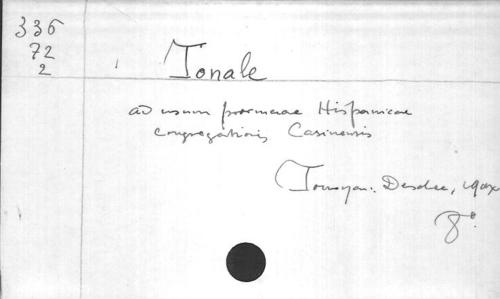 336
72
2
Tonale
ad usum provinciae Hispanicae
congregationis Casinensis
Tornaci: Desclee, 190x
8°.